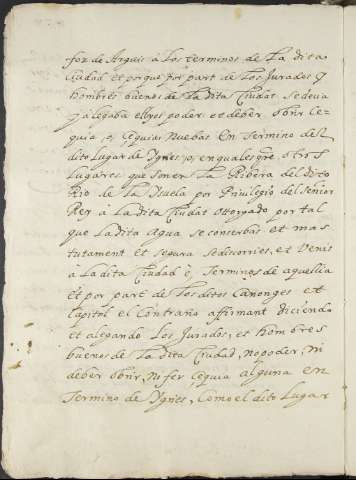 foz de Arguis à los terminos de La dita
Ciudad et porque por part de Los Jurados y
hombres buenos de La dita Ciudat se devia
y alegaba ellos poder et deber obrir ce-
quia, o, cequias nuebas en termino del
dito Lugar de Ygries, o, en quales qre otros
Lugares que son en La Ribera del dito
Rio de La Ysuela por Privilegio del Señor
Rey à La dita Ciudat otorgado por tal
que La dita agua se conserbas et mas
tutament et segura se discorries, et Venis
à La dita Ciudad è, terminos de aquellia
et por part de Los ditos Canonges et
Capitol el Contrario affirmant diciendo
et alegando Los Jurados, et hombres
buenos de La dita Ciudad, no poder, ni
deber obrir, ni fer cequia alguna en
termino de Ygries, Como el dito Lugar